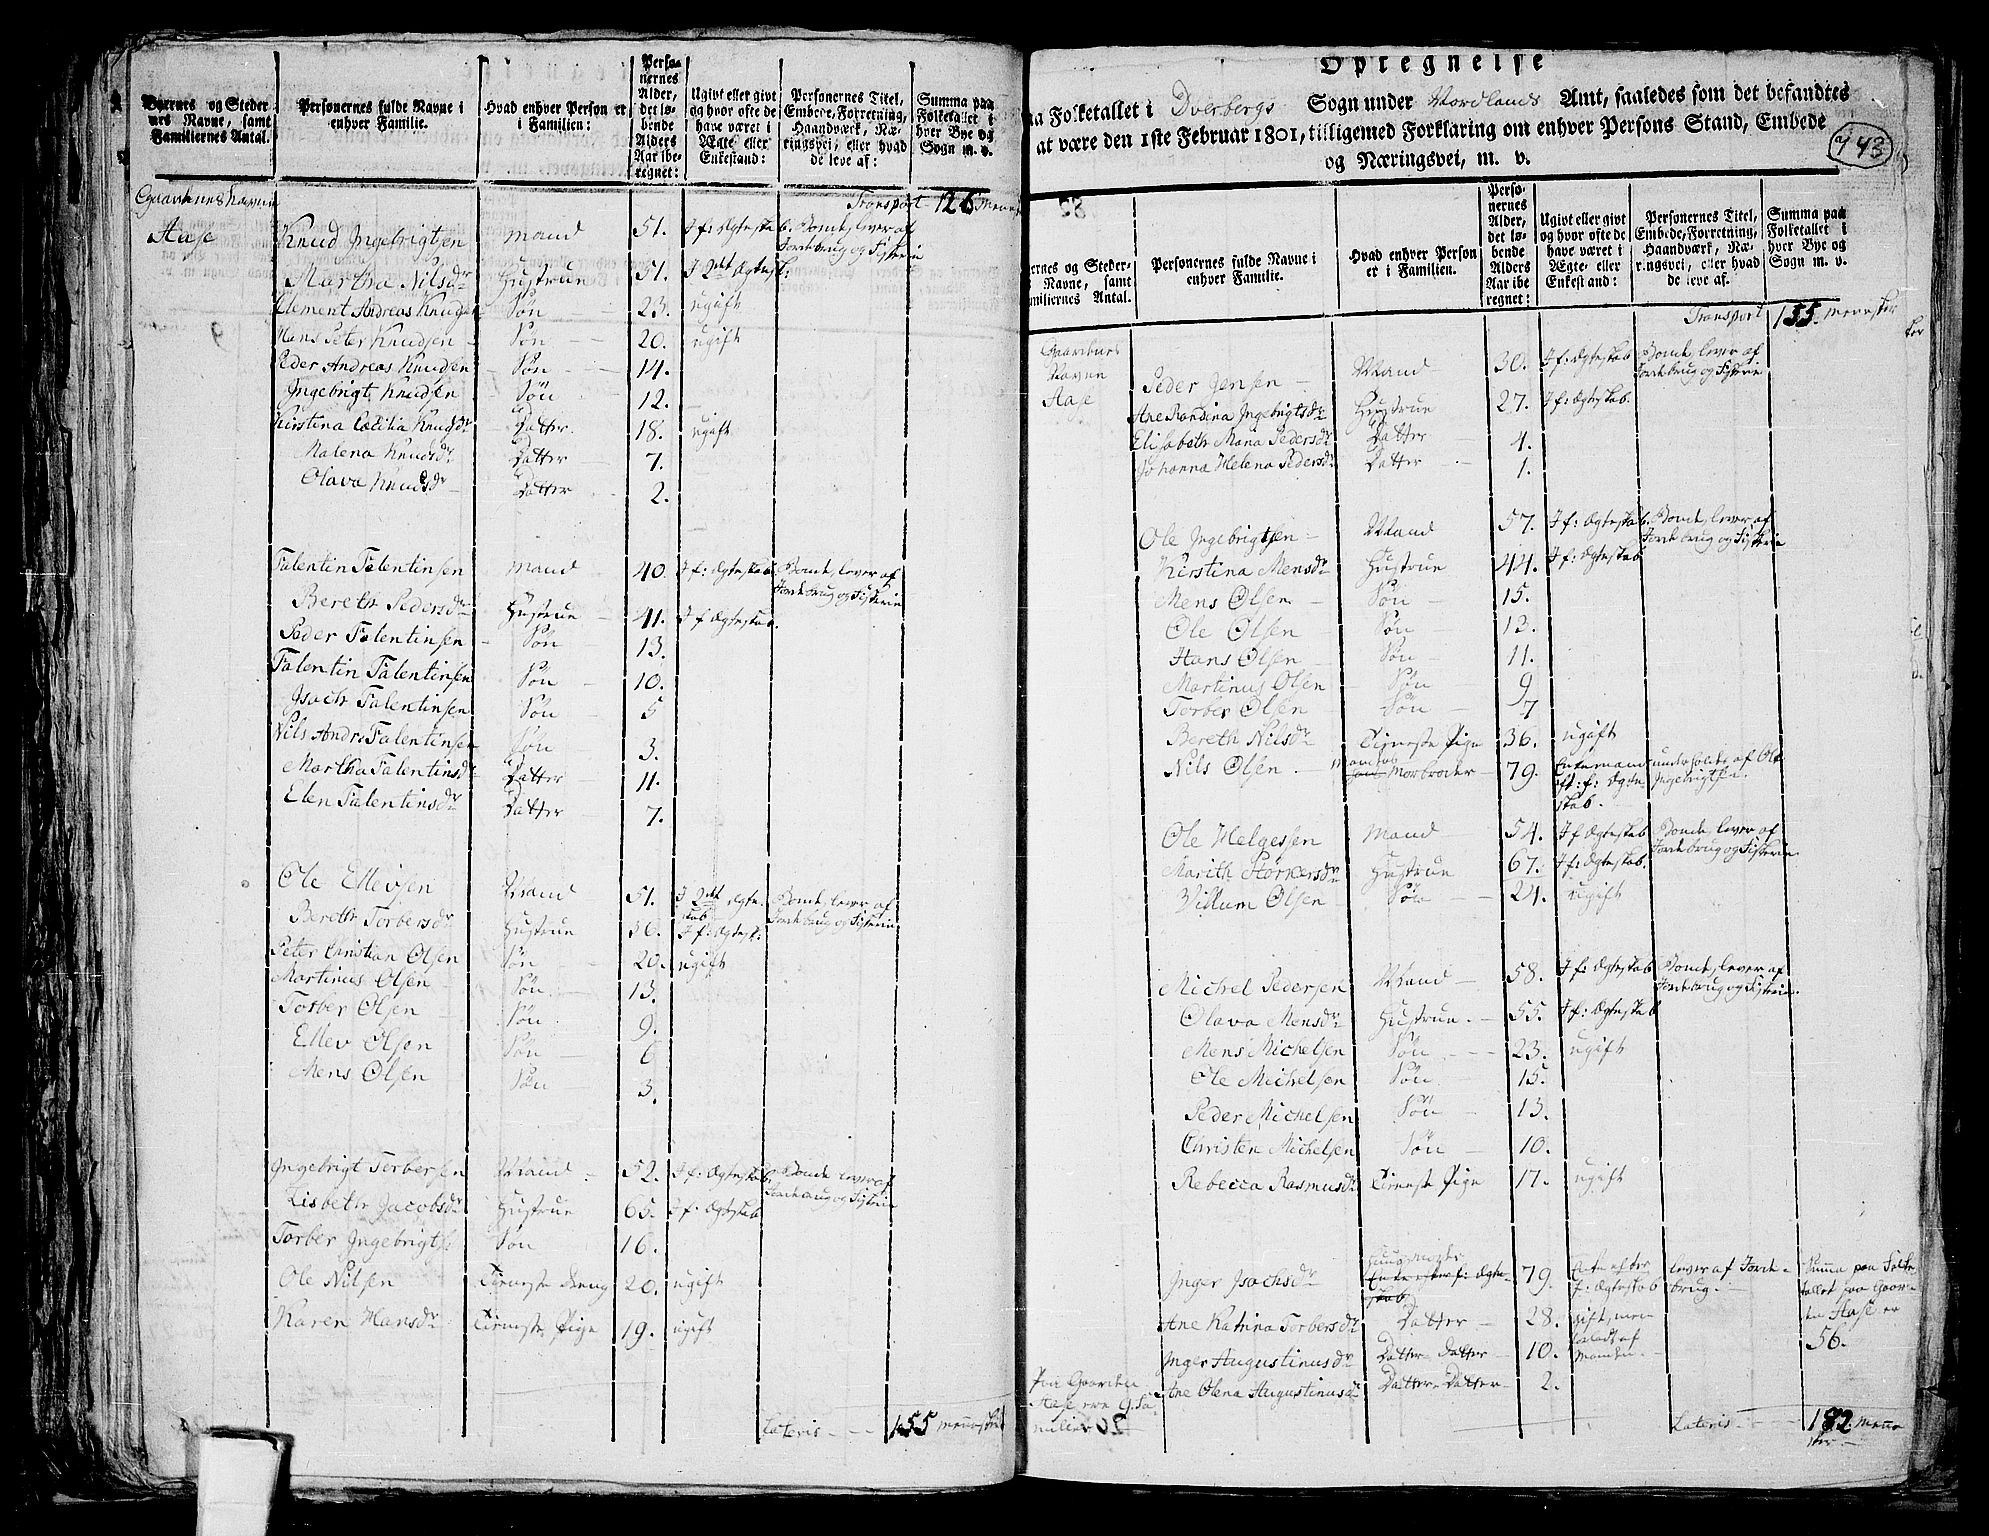 Byernes og Steder-
nes Navne, samt
Familiernes Antal.
Personernes fulde Navne i
enhver Familie.
Hvad enhver Person er
i Familien:
Perso-
nernes
Alder,
det lø-
bende
Alders
Aar ibe-
regnet:
Ugivt eller givt
og hvor ofte de
have været i
Ægte- eller
Enkestand:
Personernes Titel,
Embede, Forretning,
Haandværk, Næ-
ringsvei, eller hvad
de leve af:
Summa paa
Folketallet i
hver Bye og
Sogn m. v.
Gaardenes Navne
Transport 126 menn
Aase Knud Ingebrigtsen Mand 51. I f: Ægteskab. Bonde, lever af
Jordebrug og Fiskerie
Martha Nilsdr Hustrue 51. I 2det Ægtesk:
Clement Andreas Knudsen Søn 23. ugift
Hans Peter Knudsen Søn 20. ugift
Peder Andreas Knudsen Søn 14.
Ingebrigt Knudsen Søn 12.
Kirstina Cæcilia Knudsdr Datter 18. ugift
Malena Knudsdr Datter 7.
Olava Knudsdr Datter 2.
Falentin Falentinsen Mand 40. I f: Ægteskab. Bonde, lever af
Jordebrug og Fiskerie
Bereth Pedersdr Hustrue 41. I f: Ægteskab.
Peder Falentinsen Søn 13.
Falentin Falentinsen Søn 10.
Isach Falentinsen Søn 5
Nils Andr: Falentinsen Søn 3.
Martha Falentinsdr Datter 11.
Elen Falentinsdr Datter 7.
Ole Ellevsen Mand 51. I 2det Ægte- Bonde, lever af
skab Jordebrug og Fiskerie
Bereth Torbersdr Hustrue 36. I f: Ægtesk:
Peter Christian Olsen Søn 20. ugift
Martinus Olsen Søn 13.
Torber Olsen Søn 9.
Ellev Olsen Søn 6
Mens Olsen Søn 3.
Ingebrigt Torbersen Mand 52. I f: Ægteskab. Bonde lever af
Jordebrug og Fiskerie
Lisbeth Jacobsdr Hustrue 65. I f: Ægteskab
Torber Ingebrigts: Søn 16.
Ole Nilsen Tieneste Dreng 20. ugift
Karen Hansdr Tieneste Pige 19. ugift
Lateris 155 mennesker
Optegnelse
paa Folketallet i Dverbergs Sogn under Nordlands Amt, saaledes som det befandtes
at være den 1ste Februar 1801, tilligemed Forklaring om enhver Persons Stand, Embede
og Næringsvei, m. v.
443
Byernes og Steder-
nes Navne, samt
Familiernes Antal.
Personernes fulde Navne i
enhver Familie.
Hvad enhver Person
er i Familien.
Perso-
nernes
Alder,
det lø-
bende
Alders
Aar ibe-
regnet:
Ugivt eller givt
og hvor ofte de
have været i
Ægte- eller
Enkestand:
Personernes Titel,
Embede, Forretning,
Haandværk, Næ-
ringsvei, eller hvad
de leve af.
Summa paa
Folketallet i
hver Bye og
Sogn m. v.
Transport 155. mennesker
Gaardenes
Navne
Aase
Peder Jensen Mand 30. I f: Ægteskab Bonde, lever af
Jordebrug og Fiskerie
Ane Randina Ingebrigtsdr Hustrue 27. I f: Ægteskab.
Elisabeth Maria Pedersdr Datter 4.
Johanna Helena Pedersdr Datter 1.
Ole Ingebrigtsen Mand 57. I f: Ægteskab. Bonde, lever af
Jordebrug og Fiskerie
Kirstina Mensdr Hustrue 44. I f: Ægteskab
Mens Olsen Søn 15.
Ole Olsen Søn 12.
Hans Olsen Søn 11.
Martinus Olsen Søn 9
Torber Olsen Søn 7
Bereth Nilsdr Tieneste Pige 36. ugift
Nils Olsen Morbroder 79. Enkemand underholdes af Ole
eft: f: Ægte- Ingebrigtsen.
skab.
Ole Helgessen Mand 54. I f Ægteskab Bonde, lever af
Jordebrug og Fiskerie
Marith Storkersdr Hustrue 67. I f: Ægteskab.
Villum Olsen Søn 24. ugift
Michel Pedersen Mand 58. I f: Ægteskab Bonde, lever af
Jordebrug og Fiskerie.
Olava Mensdr Hustrue 55. I f: Ægteskab
Mens Michelsen Søn 23. ugift
Ole Michelsen Søn 15.
Peder Michelsen Søn 13.
Christen Michelsen Søn 10.
Rebecca Rasmusdr Tieneste Pige 17. ugift
Huusmoder
Inger Isachsdr Enke efter f: Ægte- 79. Enke efter lever af Jorde- Summa paa Folke-
skab f: Ægteskab brug. tallet paa Gaar-
den Aase er
56.
Ane Katrina Torbersdr Datter 28. gift, men
forladt af
Manden.
Inger Augustinusdr Datter Datter 10.
Ane Olena Augustinusdr Datter Datter 2.
Paa Gaarden
Aase ere 9. Fa-
milier
Lateris 182 menne
sker